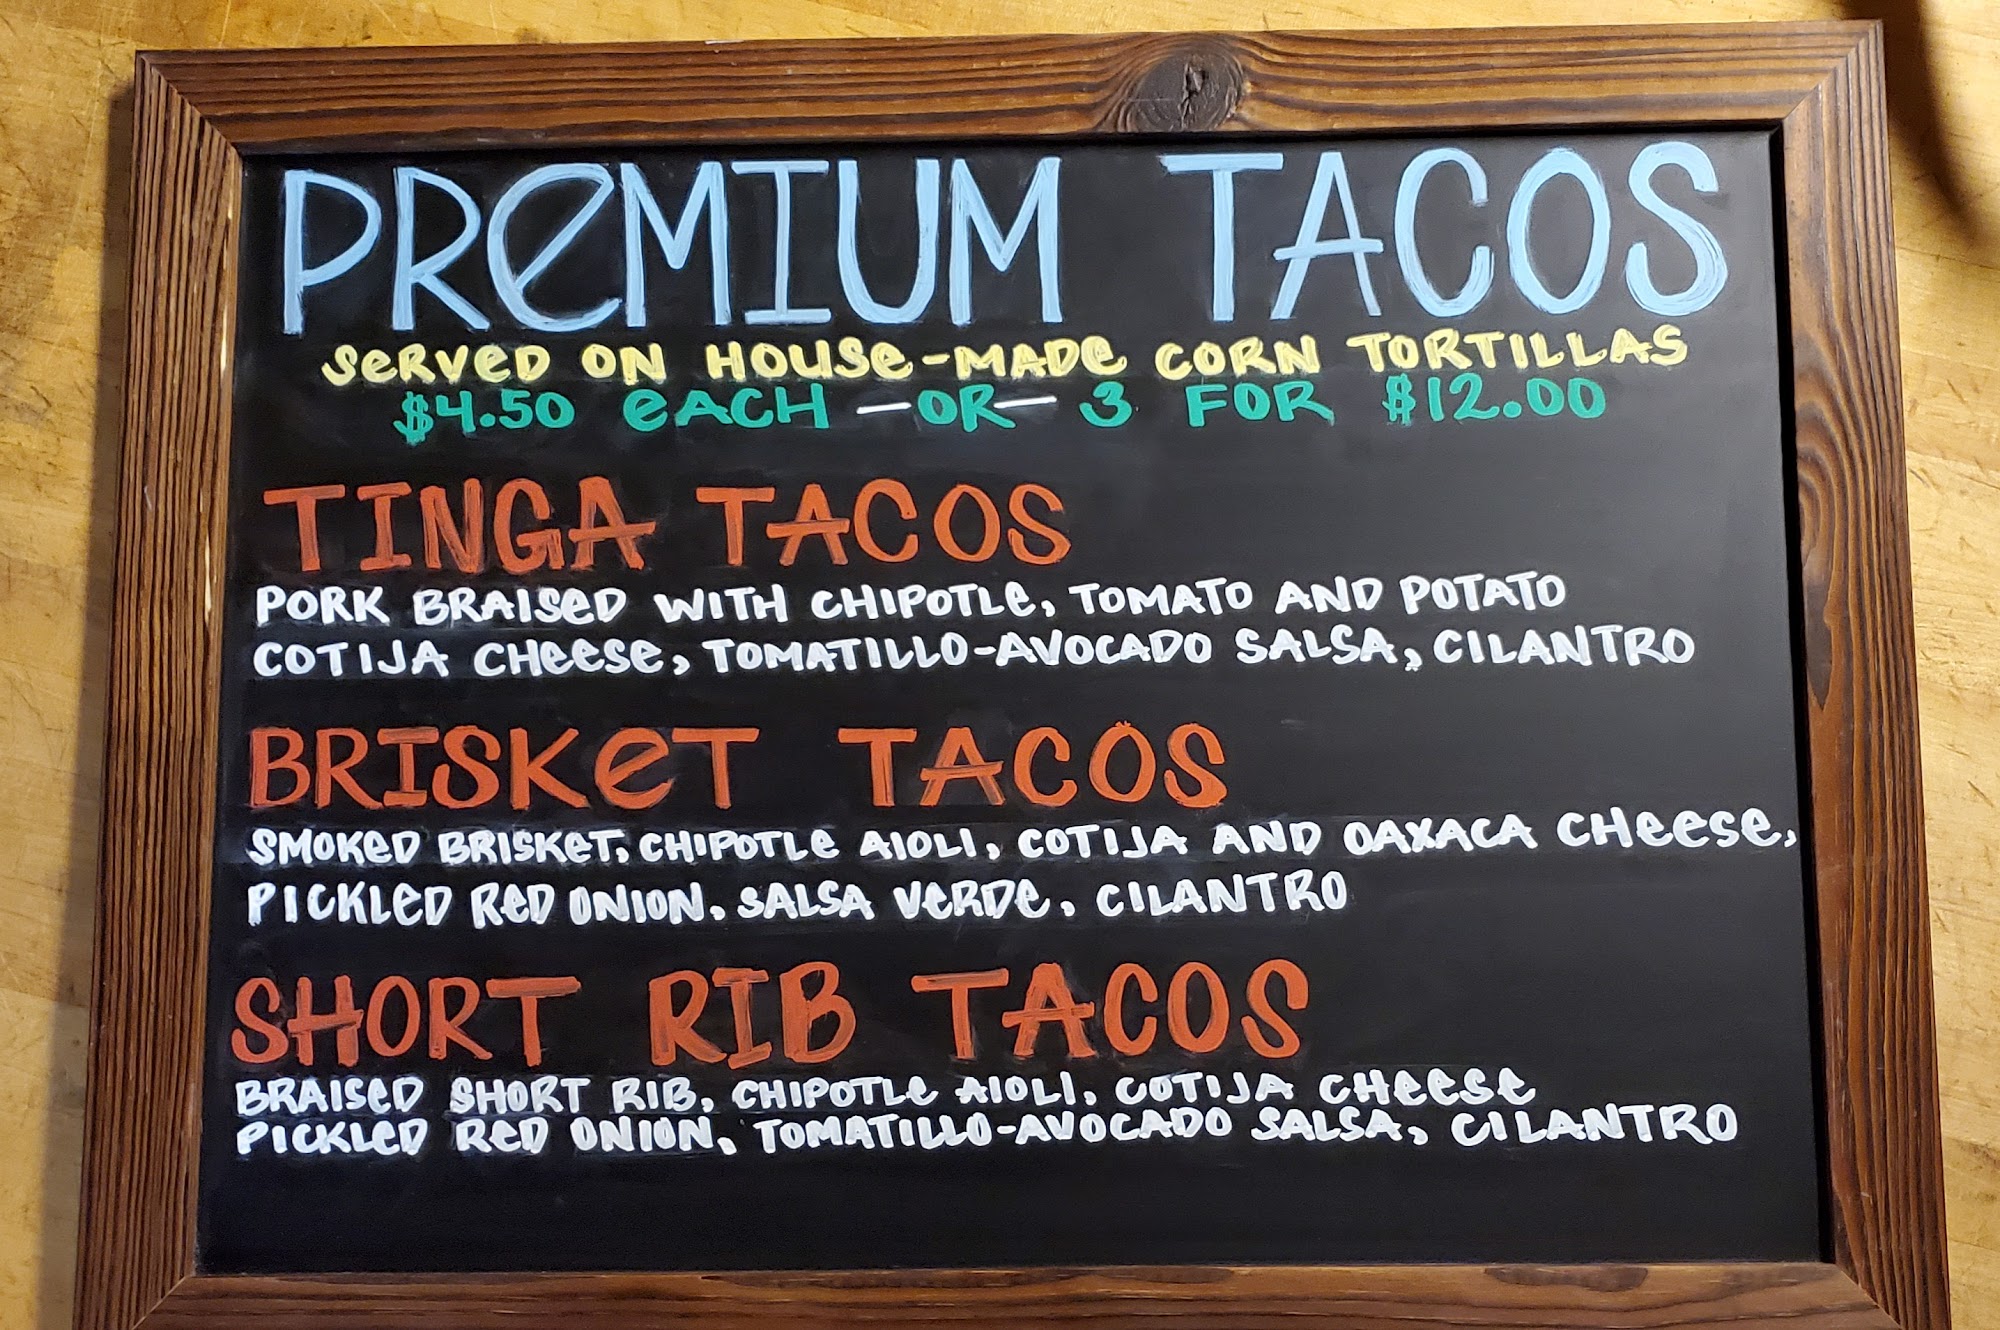 PREMIUM TACOS
SERVED ON HOUSE-MADE CORN TORTILLAS
$4.50 EACH —OR— 3 FOR $12.00
TINGA TACOS
PORK BRAISED WITH CHIPOTLE, TOMATO AND POTATO
COTIJA CHEESE, TOMATILLO-AVOCADO SALSA, CILANTRO
BRISKET TACOS
SMOKED BRISKET, CHIPOTLE AIOLI, COTIJA AND OAXACA CHEESE,
PICKLED RED ONION, SALSA VERDE, CILANTRO
SHORT RIB TACOS
BRAISED SHORT RIB, CHIPOTLE AIOLI, COTIJA CHEESE
PICKLED RED ONION, TOMATILLO-AVOCADO SALSA, CILANTRO